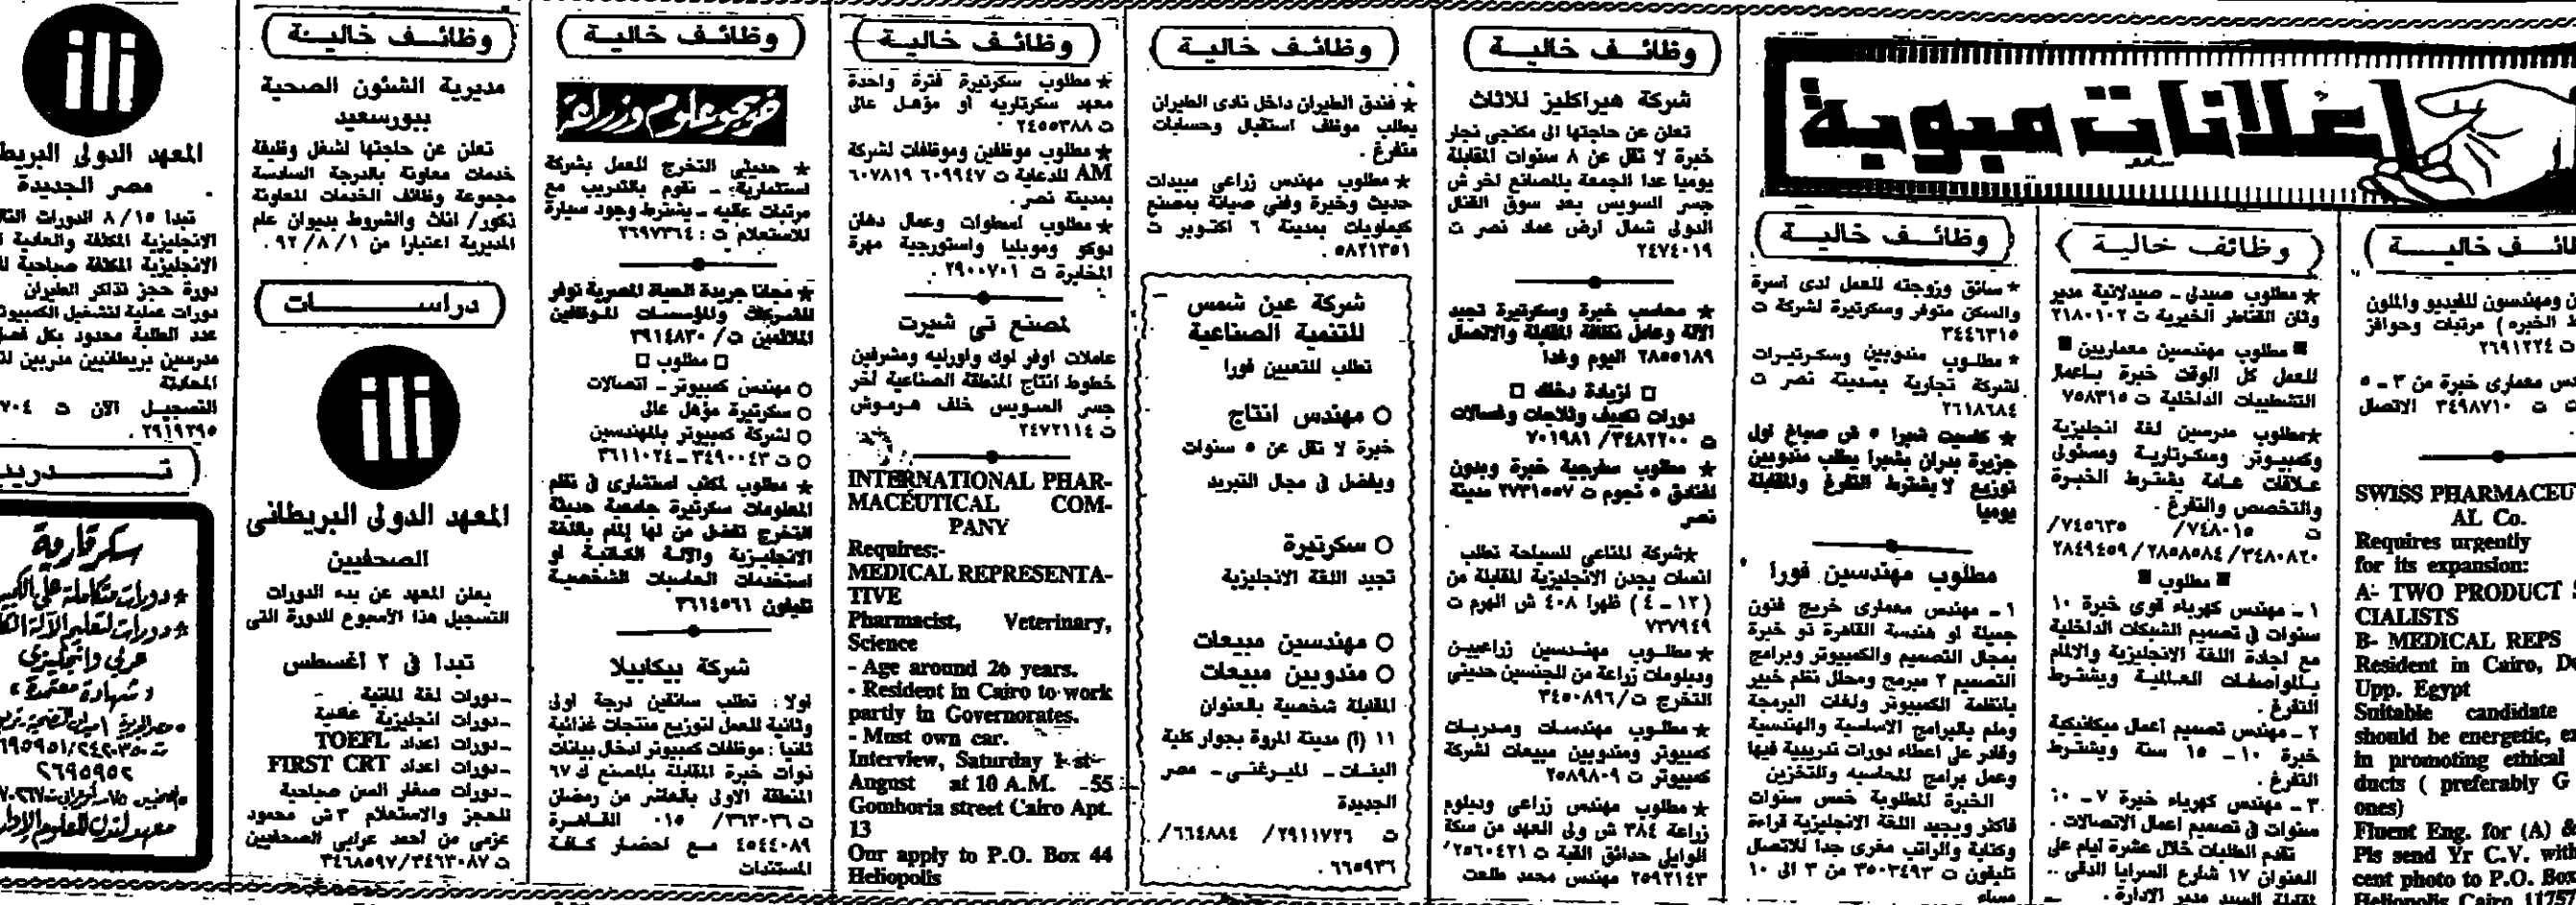 اعلانات مبوبة
لمائف خاليــة
ن ومهندسون للفيديو والملون
ط الخبره ) مرتبات وحوافز
ت ٢٦٩١٢٢٤
دس معمارى خبرة من ٣ - ٥
ت ٣٤٩٨٧١٠ الاتصل
SWISS PHARMACEU
AL Co.
Requires urgently
for its expansion:
A- TWO PRODUCT S
CIALISTS
B- MEDICAL REPS
Resident in Cairo, De
Upp. Egypt
Suitable candidate
should be energetic, ex
in promoting ethical
ducts ( preferably G
ones)
Fluent Eng. for (A) &
Pls send Yr C.V. with
cent photo to P.O. Box
Heliopolis Cairo 11757
وظائف خالية
★ مطلوب صيدلى - صيدلانية مدير
وثان القناطر الخيرية ت ٢١٨٠١٠٢
■ مطلوب مهندسين معماريين ■
للعمل كل الوقت خبرة باعمال
التشطيبات الداخلية ت ٧٥٨٣١٥
★مطلوب مدرسين لغة انجليزية
وكمبيوتر وسكرتارية ومسئولى
علاقات عامة يشترط الخبرة
والتخصص والتفرغ .
ت ٧٤٨٠١٥/ ٧٤٥٦٣٥/
٣٤٨٠٨٦٠/ ٢٨٥٨٥٨٤/ ٢٨٤٩٤٥٩
■ مطلوب ■
١ - مهندس كهرباء قوى خبرة ١٠
سنوات فى تصميم الشبكات الداخلية
مع اجادة اللغة الانجليزية والالمام
بالمواصفات العالمية ويشترط
التفرغ .
٢ - مهندس تصميم أعمال ميكانيكية
خبرة ١٠ - ١٥ سنة ويشترط
التفرغ .
٣ - مهندس كهرباء خبرة ٧ - ١٠
سنوات فى تصميم اعمال الاتصالات .
تقدم الطلبات خلال عشرة ايام على
العنوان ١٧ شارع السرايا الدقى ..
لمقابلة السيد مدير الادارة .
وظائف خالية
★ سائق وزوجته للعمل لدى اسرة
والسكن متوفر وسكرتيرة لشركة ت
٣٤٤٦٣١٥
★ مطلوب مندوبين وسكرتيرات
لشركة تجارية بمدينة نصر ت
٢٦١٨٦٨٤
★ كاسيت شبرا ٥ ش صباغ اول
جزيرة بدران بشبرا يطلب مندوبين
توزيع لا يشترط التفرغ والمقابلة
يوميا
مطلوب مهندسين فورا
١ - مهندس معمارى خريج فنون
جميلة او هندسة القاهرة ذو خبرة
بمجال التصميم والكمبيوتر وبرامج
التصميم ٢ مبرمج ومحلل نظم خبير
بانظمة الكمبيوتر ولغات البرمجة
وملم بالبرامج الاساسية والهندسية
وقادر على اعطاء دورات تدريبية فيها
وعمل برامج للمحاسبه والتخزين
الخبرة المطلوبة خمس سنوات
فاكثر ويجيد اللغة الانجليزية قراءة
وكتابة والراتب مغرى جدا للاتصال
تليفون ت ٣٥٠٣٤٩٣ من ٣ الى ١٠
مساء
وظائف خالية
شركة هيراكليز للاثاث
تعلن عن حاجتها الى مكنجى نجار
خبرة لا تقل عن ٨ سنوات المقابلة
يوميا عدا الجمعة بالمصانع اخر ش
جسر السويس بعد سوق القنال
الدولى شمال ارض عماد نصر ت
٢٤٧٤٠١٩
★ محاسب خبرة وسكرتيرة تجيد
الآلة وعامل نظافة المقابلة والاتصال
٢٨٥٥١٨٩ اليوم وغدا
□ لزيادة دخلك □
دورات تكييف وثلاجات وغسالات
ت ٣٤٨٢٢٠٠/ ٧٠١٩٨١
★ مطلوب سفرجية خبرة وبدون
لفنادق ٥ نجوم ت ٢٧٣١٥٥٧ مدينة
نصر
★شركة المناعى للسياحة تطلب
انسات يجدن الانجليزية المقابلة من
(١٢ - ٤) ظهرا ٤٠٨ ش الهرم ت
٧٣٧٩٤٩
★ مطلوب مهندسين زراعيين
ودبلومات زراعة من الجنسين حديثى
التخرج ت/٣٤٥٠٨٩٦
★ مطلوب مهندسات ومدربات
كمبيوتر ومندوبين مبيعات لشركة
كمبيوتر ت ٢٥٨٩٨٠٩
★ مطلوب مهندس زراعى ودبلوم
زراعة ٣٨٤ ش ولى العهد من سكة
الوايلى حدائق القبة ت ٢٥٦٠٤٢١
٢٥٩٢١٤٣ مهندس محمد طلعت
وظائف خالية
★ فندق الطيران داخل نادى الطيران
يطلب موظف استقبال وحسابات
متفرغ .
★ مطلوب مهندس زراعى مبيدات
حديث وخبرة وفنى صيانة بمصنع
كيماويات بمدينة ٦ اكتوبر ت
٥٨٢١٣٥١ .
شركة عين شمس
للتنمية الصناعية
تطلب للتعيين فورا
○ مهندس انتاج
خبرة لا تقل عن ٥ سنوات
ويفضل فى مجال التبريد
○ سكرتيرة
تجيد اللغة الانجليزية
○ مهندسين مبيعات
○ مندوبين مبيعات
المقابلة شخصية بالعنوان
١١ (أ) مدينة المروة بجوار كلية
البنات - الميرغنى - مصر
الجديدة
ت ٢٩١١٧٢٦/ ٦٦٤٨٨٤/
٦٦٥٩٣٦ .
وظائف خالية
★ مطلوب سكرتيرة فترة واحدة
معهد سكرتاريه او مؤهل عالى
ت ٢٤٥٥٣٨٨ .
★ مطلوب موظفين وموظفات لشركة
AM للدعاية ت ٦٠٩٩٤٧ ٦٠٧٨١٩
بمدينة نصر .
★ مطلوب اسطوات وعمال دهان
دوكو وموبيليا واستورجية مهرة
المخابرة ت ٢٩٠٠٧٠١ .
لمصنع تى شيرت
عاملات اوفر لوك واورليه ومشرفين
خطوط انتاج المنطقة الصناعية اخر
جسر السويس خلف هرموش
ت ٢٤٧٢١١٤
INTERNATIONAL PHAR-
MACEUTICAL COM-
PANY
Requires:-
MEDICAL REPRESENTA-
TIVE
Pharmacist, Veterinary,
Science
- Age around 26 years.
- Resident in Cairo to work
partly in Governorates.
- Must own car.
Interview, Saturday 1 st
August at 10 A.M. - 55
Gomhoria street Cairo Apt.
13
Onr apply to P.O. Box 44
Heliopolis
وظائف خالية
خريجو علوم وزراعة
★ حديثى التخرج للعمل بشركة
استثمارية - نقوم بالتدريب مع
مرتبات عاليه - يشترط وجود سيارة
للاستعلام ت : ٢٦٩٧٣٦٤
★ مجانا جريدة الحياة المصرية توفر
للشركات والمؤسسات الموظفين
الملائمين ت/ ٣٩١٤٨٣٠
□ مطلوب □
○ مهندس كمبيوتر - اتصالات
○ سكرتيرة مؤهل عالى
○ لشركة كمبيوتر بالمهندسين
○ ت ٣٤٩٠٠٤٣ - ٣٦١١٠٢٤
★ مطلوب لمكتب استشارى فى نظم
المعلومات سكرتيرة جامعية حديثة
التخرج تفضل من لها إلمام باللغة
الانجليزية والآلة الكاتبة او
استخدامات الحاسبات الشخصية
تليفون ٣٦١٤٥٦١
شركة بيكابيلا
اولا : تطلب سائقين درجة اولى
وثانية للعمل لتوزيع منتجات غذائية
ثانيا : موظفات كمبيوتر ادخال بيانات
ذوات خبرة المقابلة بالمصنع ك ٦٧
المنطقة الاولى بالعاشر من رمضان
ت ٣٦٣٠٣٦/ ٠١٥ القاهرة
٤٥٤٤٠٨٩ مع احضار كافة
المستندات
وظائف خالية
مديرية الشئون الصحية
ببورسعيد
تعلن عن حاجتها لشغل وظيفة
خدمات معاونة بالدرجة السادسة
مجموعة وظائف الخدمات المعاونة
ذكور/ اناث والشروط بديوان عام
المديرية اعتبارا من ١/ ٨/ ٩٢ .
دراســـات
ili
المعهد الدولى البريطانى
الصحفيين
يعلن المعهد عن بدء الدورات
التسجيل هذا الأسبوع للدورة التى
تبدأ فى ٢ أغسطس
-دورات لغة المانية
-دورات انجليزية عامية
-دورات اعداد TOEFL
-دورات اعداد FIRST CRT
-دورات صغار السن صباحية
للحجز والاستعلام ٣ ش محمود
عزمى من احمد عرابى الصحفيين
ت ٣٤٦٣٠٨٧/ ٣٤٦٨٥٩٧
ili
المعهد الدولى البريط
مصر الجديدة
تبدا ٨/١٥ الدورات التا
الانجليزية المكثفة والعادية
الانجليزية المكثفة صباحية
دورة حجز تذاكر الطيران
دورات عملية لتشغيل الكمبيوتر
عدد الطلبة محدود بكل فصل
مدرسين بريطانيين مدربين
المحادثة
التسجيل الآن ت ٧٠٤
٢٦١٩٢٩٥ .
تــدريب
سكرتارية
★ دورات متكاملة على الكمبيو
★ دورات لتعليم الآلة الكا
عربى وانجليزى
« شهادة معتمدة »
ت ٢٤٢٠٣٥٠/٦٩٥٩٥١
٢٦٩٥٩٥٢
معهد لندن للعلوم الإدار